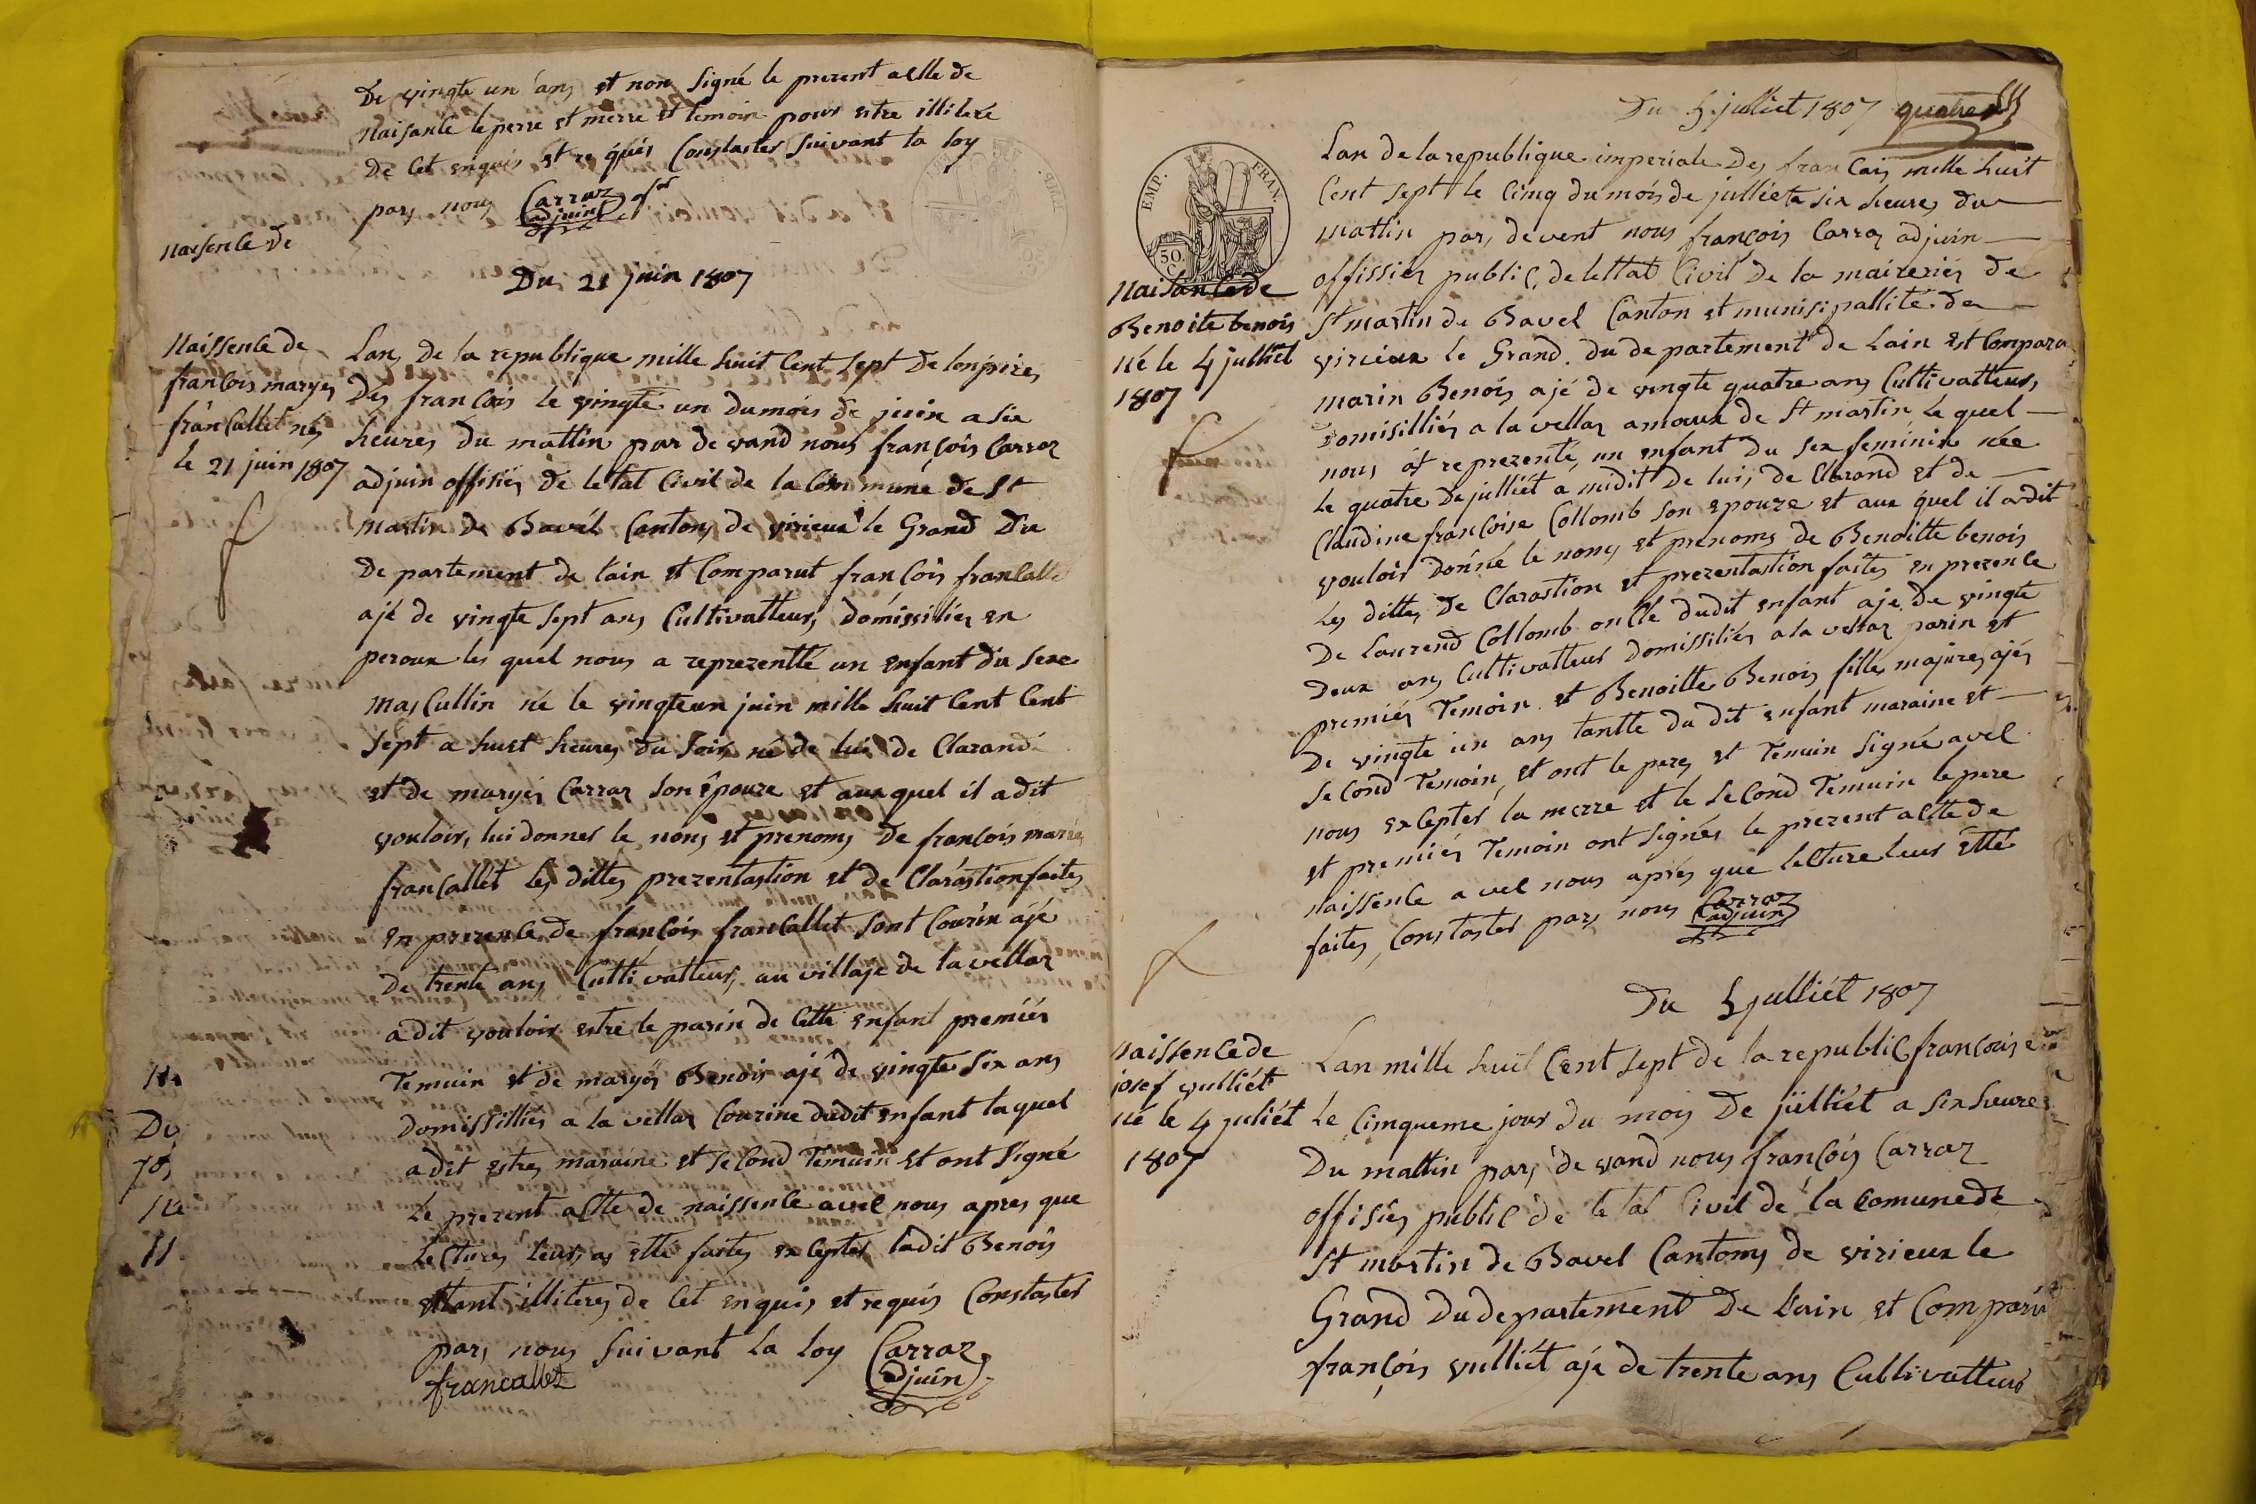 De vingte un ans et non signé le prezent actte de
Naisance le perre et merre et temoin pour estre illiteré
De cet enquis et re quis Constater suivant la loy
par nous Carraz
adjuin
Naisence de
Du 21 juin 1807
Naissence de
francois maryes
francallet né
le 21 juin 1807
Lan De la republique mille huit cent sept De lenpire
Des francois le vingte un du mois de juin a six
heures du mattin par de vand nous françois Carraz
adjuin offisies De letat Civil de la Commune de St
Martin de Bavel Canton de virieux le Grand Du
De partement de lain et Comparut françois francallet
ajé de vingte sept ans Cultivatteur, domissilies en
peroux les quel nous a reprezentté un enfant du sexe
masCullin né le vingteun juin mille huit Cent Cent
sept a huit heures du soir né de lui de Clarand
et de maryes Carraz son épouze et aux quel il a dit
vouloir, lui donner le nons et prenoms De francois maries
francallet les dittes prezentastion et de Clarastion faites
en prezence de françois francallet sont Courin ajé
De trente ans Cultivatteur, au villaje de la vellaz
a dit vouloir estre le parin de cette enfant premiés
Temuin et de maryes Benois ajé de vingte six ans
domissilliés a la vellaz Courine dudit enfant laquel
a dit estre maraine et seCond Temuin et ont signé
Le prezent actte de naissence avec nous apres que
LeCtures leur, as etté faites excepter ladit Benois
ettant illiteres de Cet enquis et requis Constater
par nous suivant la loy Carraz
adjuin
francallet
Ne
De
jos
Ne
11
Du 5 julliet 1807 quatre
EMP. FRAN.
50. C.
Naisance de
Benoite benois
Né le 4 julliet
1807
Lan de la republique imperiale Des francais mille huit
Cent sept le Cinq du mois de julliet a six heures du
mattin par devent nous françois Carraz adjuin
offissier public, de lettat Civil De la maireries de
St martin de Bavel Canton et munisipallité de
virieux le Grand du de partement de Lain et Comparu
marin Benois ajé de vingte quatre ans Cultivatteur,
Domisilliés a la vellaz amoux de St martin Le quel
nous at reprezenté un enfant du sex feminin née
Le quatre De julliet a midit De lui, de Clarand et de
Claudine françoise Collomb son epouze et aux quel il a dit
vouloir donné le noms et prenoms de Benoitte benois
Les dittes De Clarastion et prezentastion faites en prezence
De Laurend Collomb oncle dudit enfant aje de vingte
Deux ans Cultivatteur domissiliés a la vellaz parin et
premiés Temoin et Benoitte Benois fille majures ajés
De vingte un ans tantte du dit enfant maraine et
seCond Temoin, et ont le pere et Temuin signé avec
nous excepter la merre et le seCond Temuin le pere
et premiés Temoin ont signés le prezent actte de
Naissence avec nous aprés que leCture leur étté
faites, Constater par nous Carraz
adjuin
Du 5 julliét 1807
Naissence de
josef vulliét
Né le 4 juliét
1807
Lan mille huit Cent sept de la republic françoise
Le Cinqueme jour du mois De julliét a six heures
Du mattin par de vand nous françois Carraz
offisies public de le tat Civil de la comune de
St martin de Bavel Cantons de virieux le
Grand Du departement De L'ain et Comparut
françois vulliét ajé de trente ans Cultivatteur